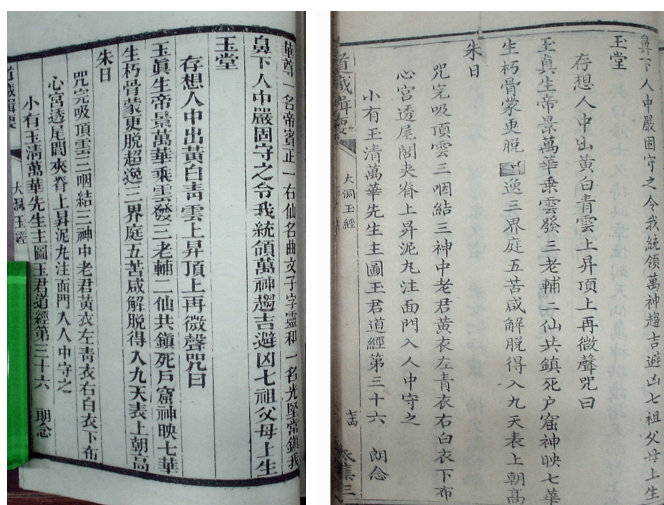 華尊一名帝賓正一右仙名曲文子字靈和一名光堅常鎮我
鼻下人中嚴固守之令我統領萬神趨吉避凶七祖父母上生
玉堂
存想人中出黃白青雲上昇頂上再微聲咒曰
玉眞生帝景萬華乘雲發三老輔二仙共鎮死戶窟神映七華
生朽骨蒙更脫超逸三界庭五苦咸解脫得入九天表上朝高
朱日
咒完吸頂雲三咽結三神中老君黃衣左青衣右白衣下布
心宮透尾閭夾脊上昇泥九注面門入人中守之
小有玉清萬華先生主圖玉君道經第三十六 朗念
道藏輯要
大洞玉經
鼻下人中嚴固守之令我統領萬神趨吉避凶七祖父母上生
玉堂
存想人中出黃白青雲上昇頂上再微聲咒曰
玉真生帝景萬華乘雲發三老輔二仙共鎮死户窟神映七華
生朽骨蒙更脫逸三界庭五苦咸解脫得入九天表上朝高
朱日
咒完吸頂雲三咽結三神中老君黃衣左青衣右白衣下布
心宮透尾閭夾脊上昇泥九注面門入人中守之
小有玉清萬華先生主圖玉君道經第三十六 朗念
道藏輯要
大洞玉經